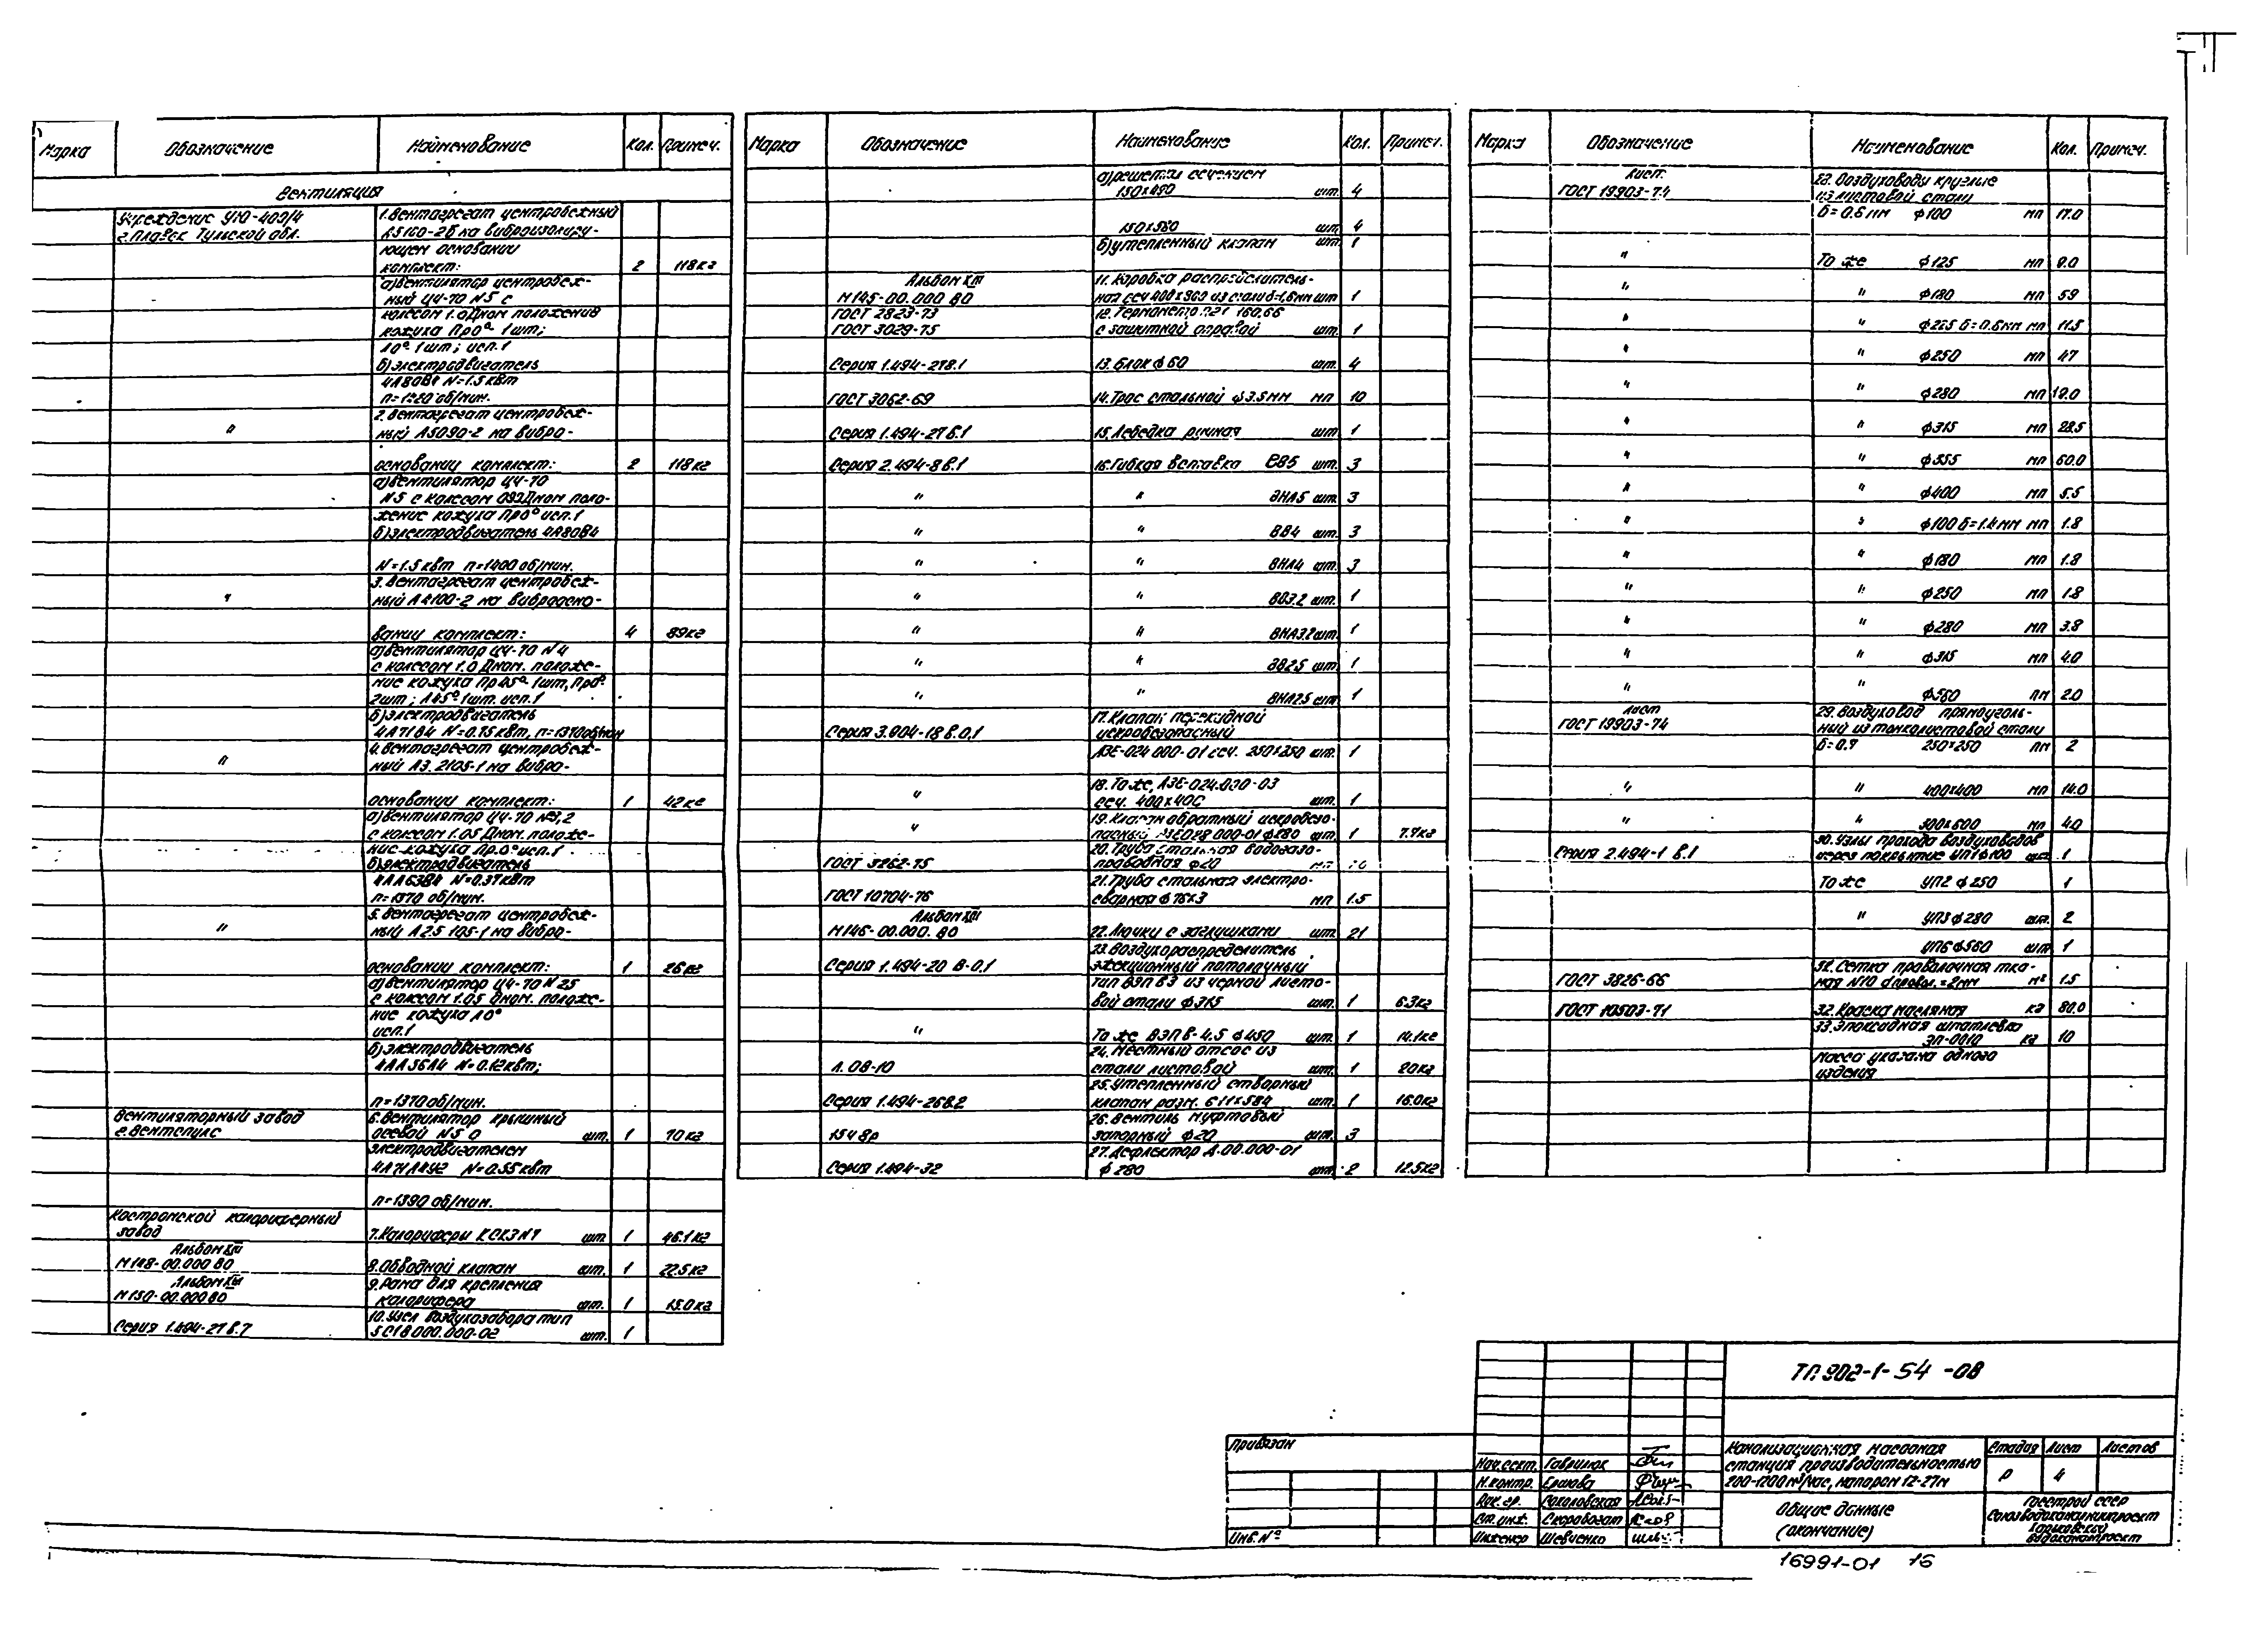 Марка Обозначение Наименование Кол. Примеч.
Вентиляция
Учреждение УЮ-400/4
г. Плавск Тульской обл.
1. Вентагрегат центробежный
А5100-2б на виброизолиру-
ющем основании
комплект: 2 118кг
а) вентилятор центробеж-
ный Ц4-70 N5 с
колесом 1.0Дном положения
кожуха Пр0° 1шт;
Л0° 1шт; исп.1
б) электродвигатель
4А80В4 N=1.5 квт
об/мин.
" 2. Вентагрегат центробеж-
ный А5090-2 на вибро-
основании комплект: 2 118кг
а) вентилятор Ц4-70
N5 с колесом Дном поло-
жение кожуха Пр0° исп.1
б) электродвигатель 4А80В4
N=1.5 квт n=1400 об/мин.
" 3. Вентагрегат центробеж-
ный А4100-2 на виброосно-
вании комплект: 4 89кг
а) вентилятор Ц4-70 N4
с колесом 1.0 Дном. положе-
ние кожуха Пр45° 1шт, Пр0°
2шт; Л45° 1шт. исп.1
б) электродвигатель
4А71В4 N=0.75 квт, n=1370об/мин
" 4. Вентагрегат центробеж-
ный А3.2105-1 на вибро-
основании комплект: 1 42кг
а) вентилятор Ц4-70 N3,2
с колесом 1.05 Дном. положе-
ние кожуха Пр.0° исп.1
б) электродвигатель
4АА63В4 N=0.37квт
n=1370 об/мин.
" 5. Вентагрегат центробеж-
ный А2.5 105-1 на вибро-
основании комплект: 1 26кг
а) вентилятор Ц4-70 N 2.5
с колесом 1.05 Дном. положе-
ние кожуха Л0°
исп.1
б) электродвигатель
4АА56А4 N=0.12квт;
n=1370 об/мин.
Вентиляторный завод
6. Вентилятор крышный
осевой N5 0 шт. 1 70кг
электродвигателем
N=0.55квт
n=1390 об/мин.
Костромской калориферный
завод 7. Калориферы КСК3N7 шт 1 46.1кг
Альбом XIII
М148-00.000 В0 8. Обводной клапан шт. 1 22.5кг
Альбом XIII
М150-00.000В0 9. Рама для крепления
калорифера шт. 1 15.0кг
Серия 1.494-27 в.7 10. Узел воздухозабора тип
5С18000.000-02 шт. 1
Марка Обозначение Наименование Кол. Примеч.
а) решетки сечением
150х490 шт 4
150х580 шт 4
б) утепленный клапан шт. 1
Альбом XIII
М145-00.000 В0 11. Коробка распределитель-
ная сеч 400х900 из стали δ=1,6мм шт 1
ГОСТ 2823-73
ГОСТ 3029-75 с защитной оправой шт. 1
Серия 1.494-27в.1 13. Блок ф 60 шт. 4
ГОСТ 3062-69 14. Трос стальной ф3.5мм мп 10
Серия 1.494-27 в.1 15. Лебедка ручная шт 1
Серия 2.494-8 в.1 16. Гибкая вставка ВВ5 шт. 3
" " ВНА5 шт. 3
" " ВВ4 шт. 3
" " ВНА4 шт. 3
" " ВВ3.2 шт. 1
" " ВНА3.2 шт. 1
" " ВВ2.5 шт 1
" " ВНА2.5 шт 1
Серия 3.904-18 в.0,1 17. Клапан перекидной
искробезопасный
АЗЕ-024 000-01 сеч. 250х250 шт. 1
" 18. То же, АЗЕ-024.000-03
сеч. 400х400 шт. 1
" 19. Клапан обратный искробезо-
пасный ф280 шт. 1 7.7кг
ГОСТ 3262-75 20. Труба стальная водогазо-
проводная ф20 мп
ГОСТ 10704-76 21. Труба стальная электро-
сварная ф76х3 мп 1.5
Альбом XIII
М146-00.000. В0 22. Лючки с заглушками шт 21
Серия 1.494-20 В-0.1 23. Воздухораспределитель
эжекционный потолочный
тип ВЭП ВЗ из черной листо-
вой стали ф315 шт. 1 6.3кг
" То же ВЭП В-4.5 ф450 шт. 1 14.1кг
Л. 08-10 24. Местный отсос из
стали листовой шт. 1 20кг
Серия 1.494-26в.2 25. Утепленный створный
клапан разм. 611х584 шт. 1 16.0кг
15ч 8р 26. Вентиль муфтовый
запорный ф20 шт. 3
Серия 1.494-32 27. Дефлектор Д.00.000-01
ф 280 шт. 2 12.5кг
Марка Обозначение Наименование Кол. Примеч.
Лист
ГОСТ 19903-74 28. Воздуховоды круглые
из листовой стали
δ=0.6мм ф100 мп 17.0
" То же ф125 мп 9.0
" " ф180 мп 59
" " ф225 δ=0.6мм мп 11.5
" " ф250 мп 47
" " ф280 мп 19.0
" " ф315 мп 28.5
" " ф355 мп 60.0
" " ф400 мп 5.5
" " ф100 δ=1.4мм мп 1.8
" " ф180 мп 1.8
" " ф250 мп 1.8
" " ф280 мп 3.8
" " ф315 мп 4.0
" " ф560 пм 2.0
Лист
ГОСТ 19903-74 29. Воздуховод прямоуголь-
ный из тонколистовой стали
δ=0.7 250х250 пм 2
" " 400х400 мп 14.0
" " 300х600 мп 4.0
Серия 2.494-1 в.1 30. Узлы прохода воздуховодов
через покрытие УП1 ф100 шт 1
То же УП2 ф 250 1
" УП3 ф280 шт. 2
УП6 ф560 шт 1
ГОСТ 3826-66 31. Сетка проволочная тка-
ная N10 d провол. =2мм м² 1.5
ГОСТ 10503-71 32. Краска масляная кг 80.0
33. Эпоксидная шпатлевка
ЭП-0010 кг 10
Масса указана одного
изделия
ТП 902-1-54 -08
Привязан
Инв. №
Нач.сект. Гаврилюк
Н.контр. Ершова
Рук. гр. Соколовская
Ст. инж. Скоробогат
Инженер Шевченко
Канализационная насосная
станция производительностью
200-1200 м³/час, напором 12-27м
Стадия Лист Листов
Р 4
Общие данные
(окончание)
Госстрой СССР
Союзводоканалниипроект
Харьковский
Водоканалпроект
16991-01 16